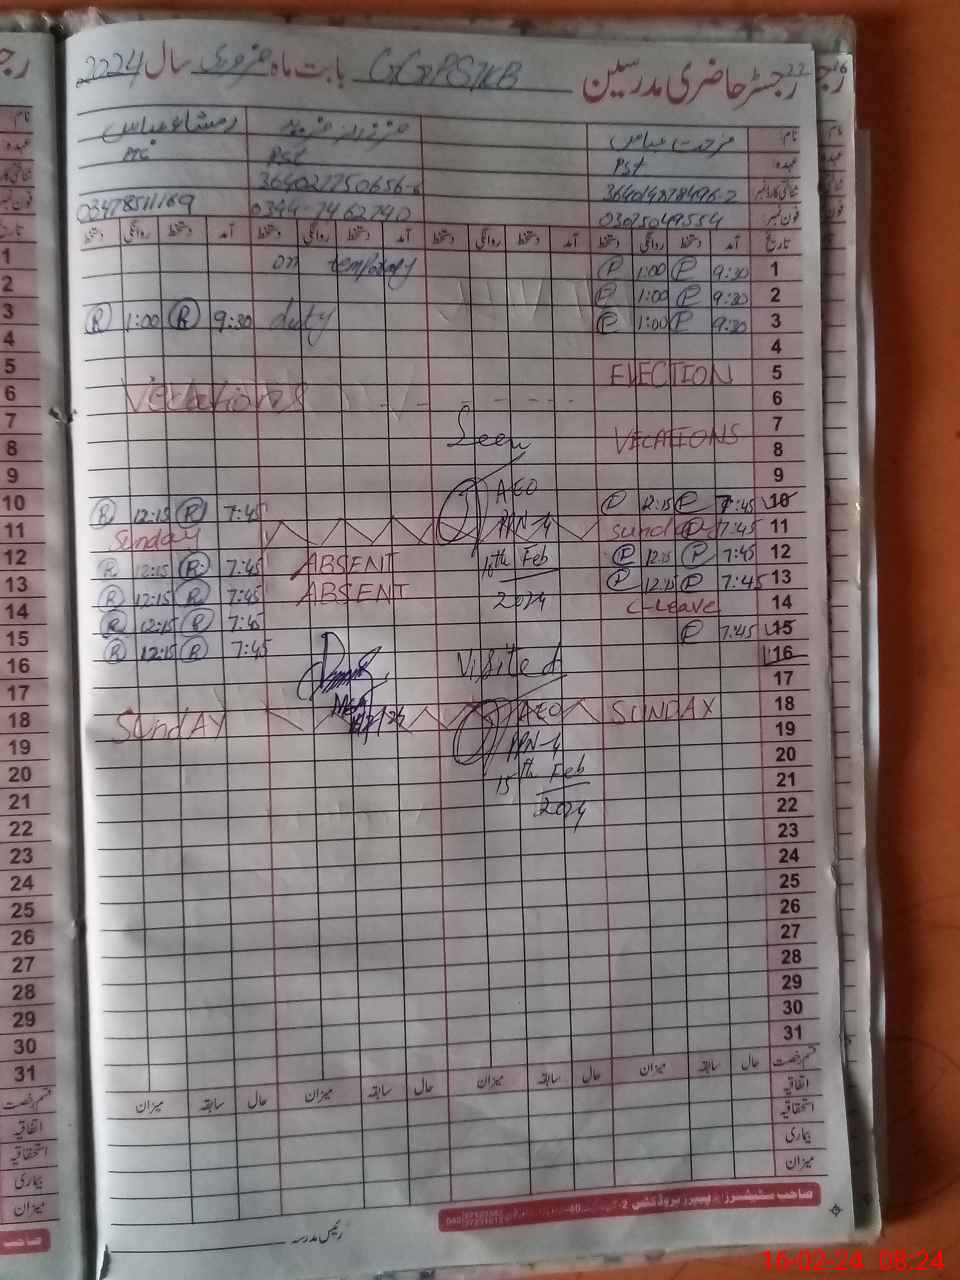 رجسٹر حاضری مدرسین GGPS7KB بابت ماہ فروری سال 2024
نام: فرحت عباس
عہدہ: PST PST PTC
364027750656-6
فون نمبر: 03075049554 0344-7462790 03478511169
تاریخ آمد دستخط روانگی دستخط آمد دستخط روانگی دستخط آمد دستخط روانگی دستخط آمد دستخط روانگی دستخط
1 9:30 P 1:00 P on temporary
2 9:30 P 1:00 P
3 9:30 P 1:00 P duty 9:30 R 1:00 R
4
5 ELECTION
6 Vecations
7
8 VECATIONS Seen
9
10 7:45 P 12:15 P AEO 7:45 R 12:15 R
11 7:45 P Sunday PPN-4 Sunday
12 7:45 P 12:15 P 16th Feb ABSENT 7:45 R 12:15 R
13 7:45 P 12:15 P ABSENT 7:45 R 12:15 R
14 C-Leave 2024 7:45 R 12:15 R
15 7:45 P 7:45 R 12:15 R
16 Visited
17
18 SUNDAY AEO SUNDAY
19 PPN-4
20 15th Feb
21
22 2024
23
24
25
26
27
28
29
30
31
قسم رخصت حال سابقہ میزان حال سابقہ میزان حال سابقہ میزان حال سابقہ میزان
اتفاقیہ
استحقاقیہ
بیماری
میزان
رئیس مدرسہ
16-02-24 08:24